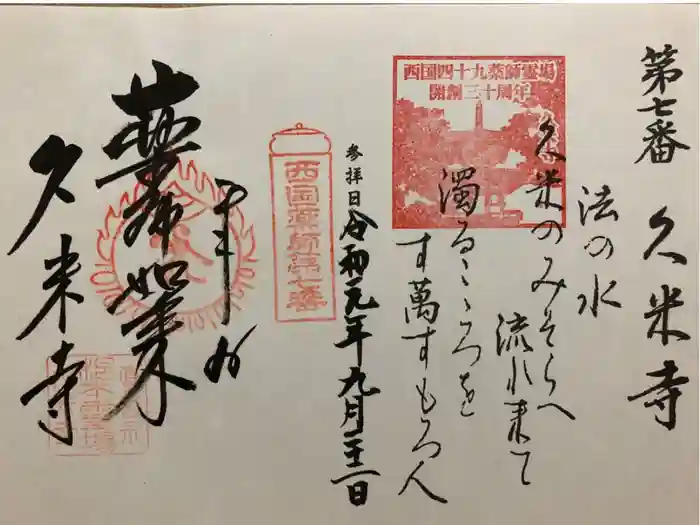 第七番　久米寺
法の水
久米のみそらへ
流れ来て
濁るこころを
す萬すもろ人
西国四十九薬師霊場
開創三十周年
参拝日
令和元年九月二十二日
西国薬師第七番
奉拝
薬師如来
久米寺